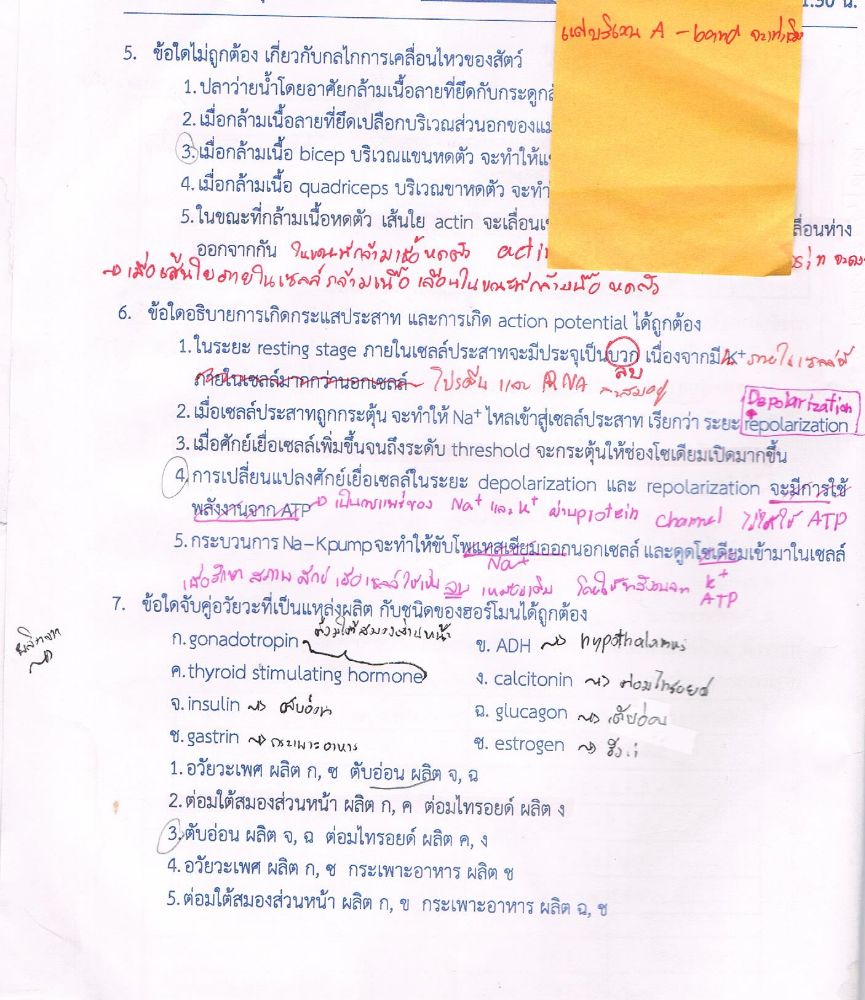 1.30 น.
แต่บริเวณ A - band จะเท่าเดิม
5. ข้อใดไม่ถูกต้อง เกี่ยวกับกลไกการเคลื่อนไหวของสัตว์
1. ปลาว่ายน้ำโดยอาศัยกล้ามเนื้อลายที่ยึดกับกระดูก
2. เมื่อกล้ามเนื้อลายที่ยึดเปลือกบริเวณส่วนอกของ
3. เมื่อกล้ามเนื้อ bicep บริเวณแขนหดตัว จะทำให้
4. เมื่อกล้ามเนื้อ quadriceps บริเวณขาหดตัว จะทำ
5. ในขณะที่กล้ามเนื้อหดตัว เส้นใย actin จะเลื่อน ลื่อนห่าง
ออกจากกัน ในขณะที่กล้ามเนื้อหดตัว acti
เส้นใยภายในเซลล์กล้ามเนื้อ เลื่อนในขณะที่กล้ามเนื้อ หดตัว
6. ข้อใดอธิบายการเกิดกระแสประสาท และการเกิด action potential ได้ถูกต้อง
1. ในระยะ resting stage ภายในเซลล์ประสาทจะมีประจุเป็นบวก เนื่องจากมี K⁺ ภายในเซลล์มี
ลบ
ภายในเซลล์มากกว่านอกเซลล์ โปรตีน และ RNA สะสมอยู่
Depolarization
2. เมื่อเซลล์ประสาทถูกกระตุ้น จะทำให้ Na⁺ ไหลเข้าสู่เซลล์ประสาท เรียกว่า ระยะ repolarization
3. เมื่อศักย์เยื่อเซลล์เพิ่มขึ้นจนถึงระดับ threshold จะกระตุ้นให้ช่องโซเดียมเปิดมากขึ้น
4. การเปลี่ยนแปลงศักย์เยื่อเซลล์ในระยะ depolarization และ repolarization จะมีการใช้
พลังงานจาก ATP เป็นการแพร่ของ Na⁺ และ K⁺ ผ่าน protein channel ไม่ได้ใช้ ATP
5. กระบวนการ Na-Kpump จะทำให้ขับโพแทสเซียมออกนอกเซลล์ และดูดโซเดียมเข้ามาในเซลล์
Na⁺ K⁺
เพื่อรักษา สภาพ ศักย์ เยื่อเซลล์ให้เป็น ลบ เหมือนเดิม โดยใช้พลังงานจาก ATP
7. ข้อใดจับคู่อวัยวะที่เป็นแหล่งผลิต กับชนิดของฮอร์โมนได้ถูกต้อง
ผลิตจาก
ก. gonadotropin ต่อมใต้สมองส่วนหน้า ข. ADH hypothalamus
ค. thyroid stimulating hormone ง. calcitonin ต่อมไทรอยด์
จ. insulin ตับอ่อน ฉ. glucagon ตับอ่อน
ช. gastrin กระเพาะอาหาร ซ. estrogen รังไข่
1. อวัยวะเพศ ผลิต ก, ซ ตับอ่อน ผลิต จ, ฉ
2. ต่อมใต้สมองส่วนหน้า ผลิต ก, ค ต่อมไทรอยด์ ผลิต ง
3. ตับอ่อน ผลิต จ, ฉ ต่อมไทรอยด์ ผลิต ค, ง
4. อวัยวะเพศ ผลิต ก, ซ กระเพาะอาหาร ผลิต ช
5. ต่อมใต้สมองส่วนหน้า ผลิต ก, ข กระเพาะอาหาร ผลิต ฉ, ช